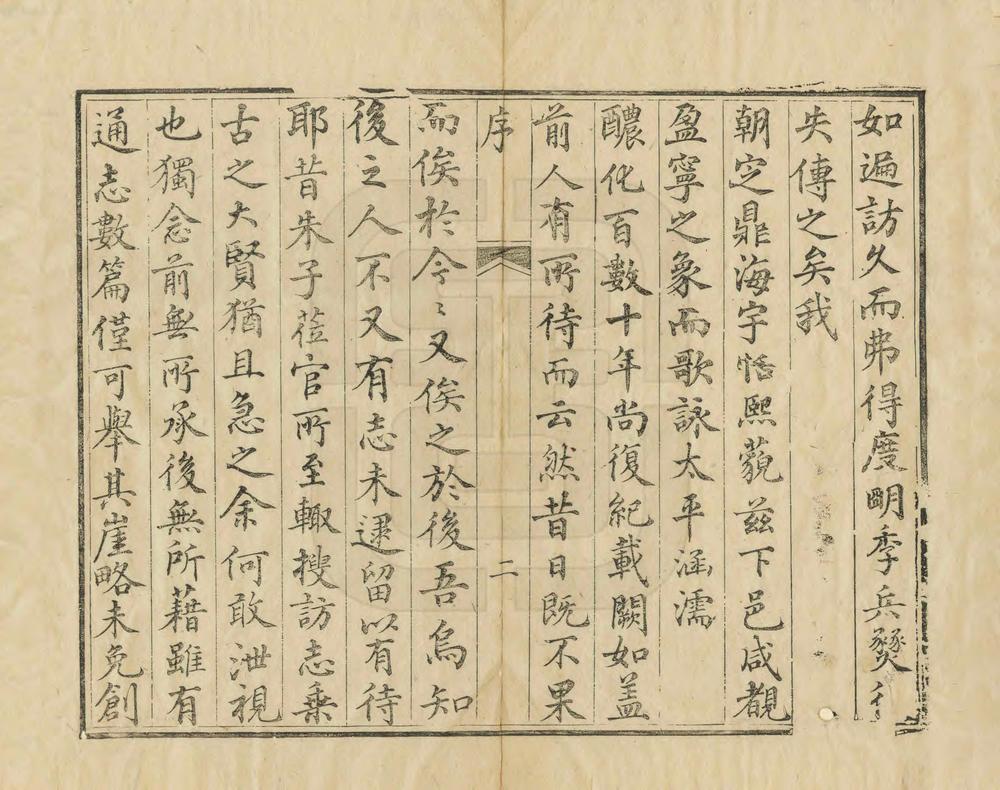 如遍訪久而弗得度明季兵燹
失傳之矣我
朝定鼎海宇恬熙藐兹下邑咸覩
盈寧之象而歌詠太平涵濡
醲化百數十年尚復紀載闕如盖
前人有所待而云然昔日既不果
序
二
而俟於今今又俟之於後吾烏知
後之人不又有志未逮留以有待
耶昔朱子莅官所至輙搜訪志乗
古之大賢猶且急之余何敢泄視
也獨念前無所承後無所藉雖有
通志數篇僅可舉其崖略未免創